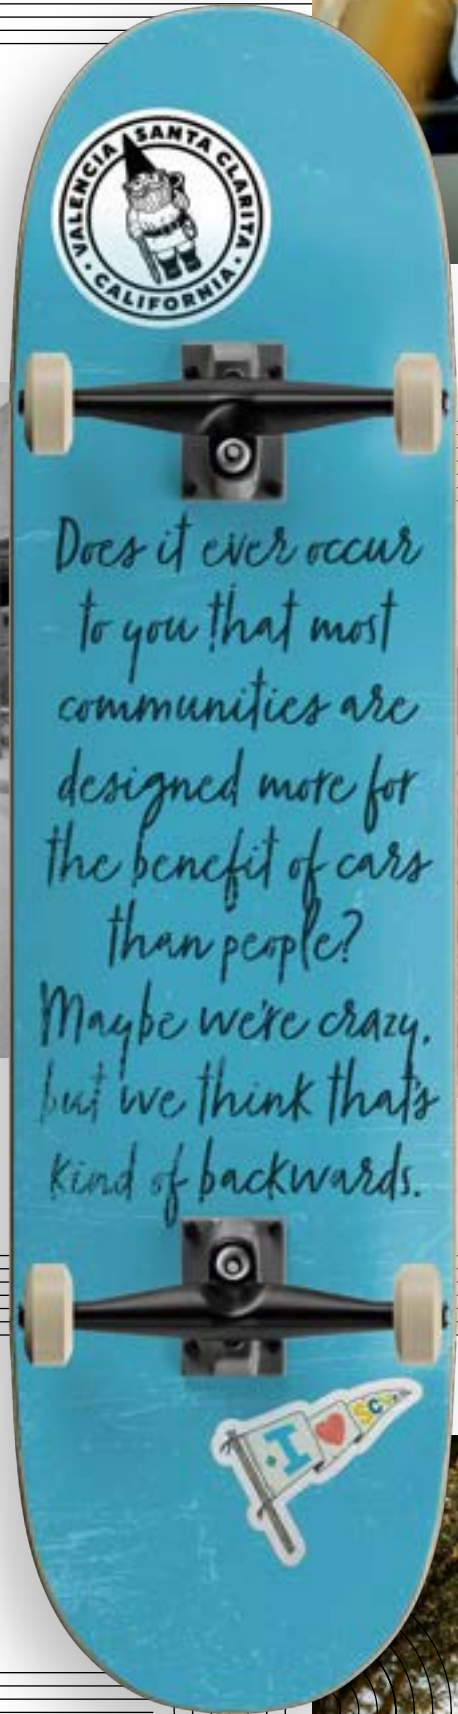 VALENCIA • SANTA CLARITA • CALIFORNIA •
Does it ever occur
to you that most
communities are
designed more for
the benefit of cars
than people?
Maybe we're crazy,
but we think that's
kind of backwards.
I ♥ SCV